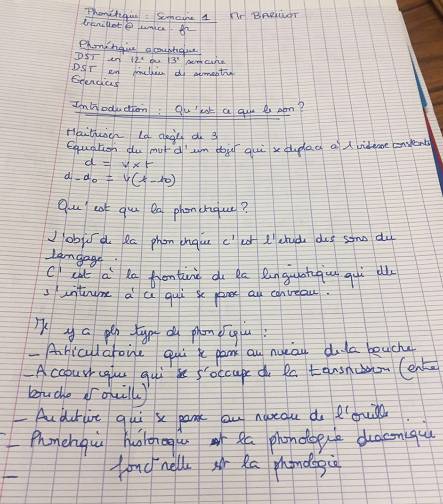 Phonétique : Semaine 1 Mr BARILLOT
barillot@unice.fr
Phonétique acoustique
DST en 12e ou 13e semaine
DST en milieu de semestre
Exercices
Introduction : Qu'est ce que le son ?
Maitriser la règle de 3
Equation du mvt d'un objet qui se deplace à 1 vitesse constante
d = v x t
d - d0 = v(t - t0)
Qu'est que la phonétique ?
L'objet de la phonétique c'est l'etude des sons du
langage.
C'est à la frontière de la linguistique qui elle
s'interesse à ce qui se passe au cerveau.
Il y a pls type de phonétique :
- Articulatoire qui se passe au niveau de la bouche
- Accoustique qui s'occupe de la transmission (entre
bouche et oreille)
- Auditive qui se passe au niveau de l'oreille
- Phonétique historique est la phonologie diaconique
- fonctnelle est la phonologie